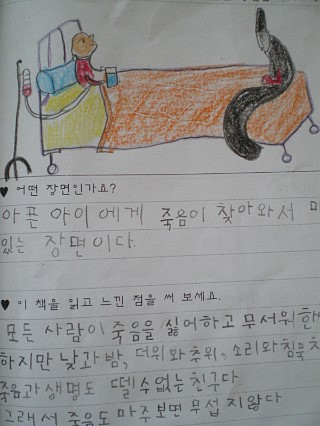 ♥ 어떤 장면인가요?
아픈 아이에게 죽음이 찾아와서
있는 장면이다.
♥ 이 책을 읽고 느낀 점을 써 보세요.
모든 사람이 죽음을 싫어하고 무서워한
하지만 낮과 밤, 더위와 추위, 소리와 침묵
죽음과 생명도 뗄 수 없는 친구다
그래서 죽음도 마주보면 무섭지 않다